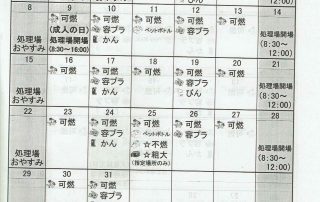 12:00)
8 9 10 11 12 13 14
処理場
おやすみ
可燃
(成人の日)
処理場開場
(8:30~16:00)
可燃
容プラ
かん
可燃
ペットボトル
可燃
容プラ
可燃
処理場開場
(8:30~
12:00)
15 16 17 18 19 20 21
処理場
おやすみ
可燃
可燃
容プラ
かん
可燃
可燃
容プラ
びん
可燃
処理場開場
(8:30~
12:00)
22 23 24 25 26 27 28
処理場
おやすみ
可燃
可燃
容プラ
かん
可燃
ペットボトル
☆不燃
☆粗大
(指定場所のみ)
可燃
容プラ
可燃
処理場開場
(8:30~
12:00)
29 30 31
処理場
おやすみ
可燃
可燃
容プラ
かん